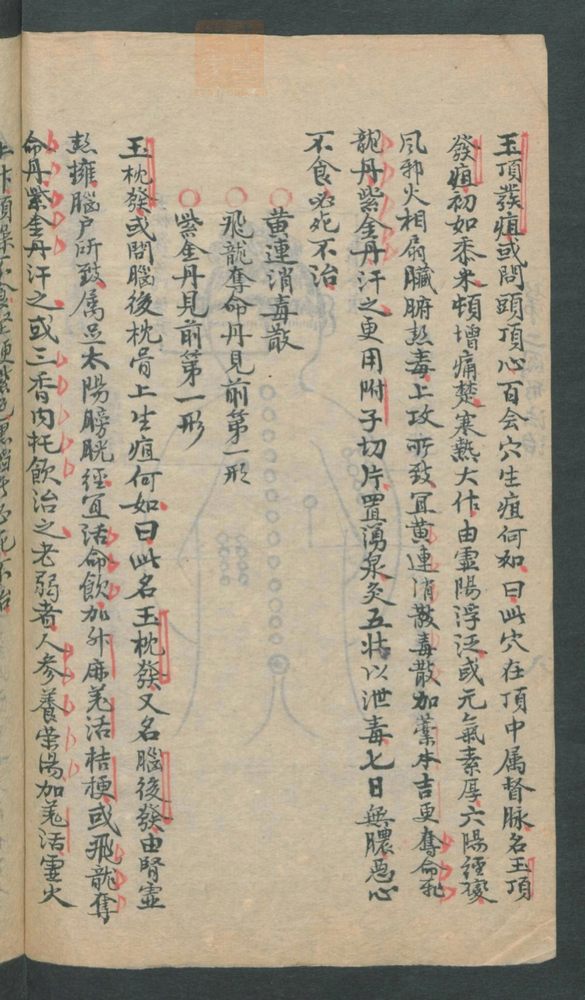 玉頂發疽或問頭頂心百会穴生疽何如曰此穴在頂中属督脉名玉頂
發疽初如黍米頓增痛楚寒熱大作由虛陽浮泛或元氣素厚六陽經变
風邪火相扇臟腑熱毒上攻所致宜黄連消散毒散加藁本吉更奪命飛
龍丹紫金丹汗之更用附子切片置湧泉灸五壮以泄毒七日無膿惡心
不食必死不治
黄連消毒散
飛龍奪命丹見前第一形
紫金丹見前第一形
玉枕發或問腦後枕骨上生疽何如曰此名玉枕發又名腦後發由腎虛
熱擁腦户所致属足太陽膀胱經宜活命飲加升麻羗活桔梗或飛龍奪
命丹紫金丹汗之或三香内托飲治之老弱者人参養荣湯加羗活虛火